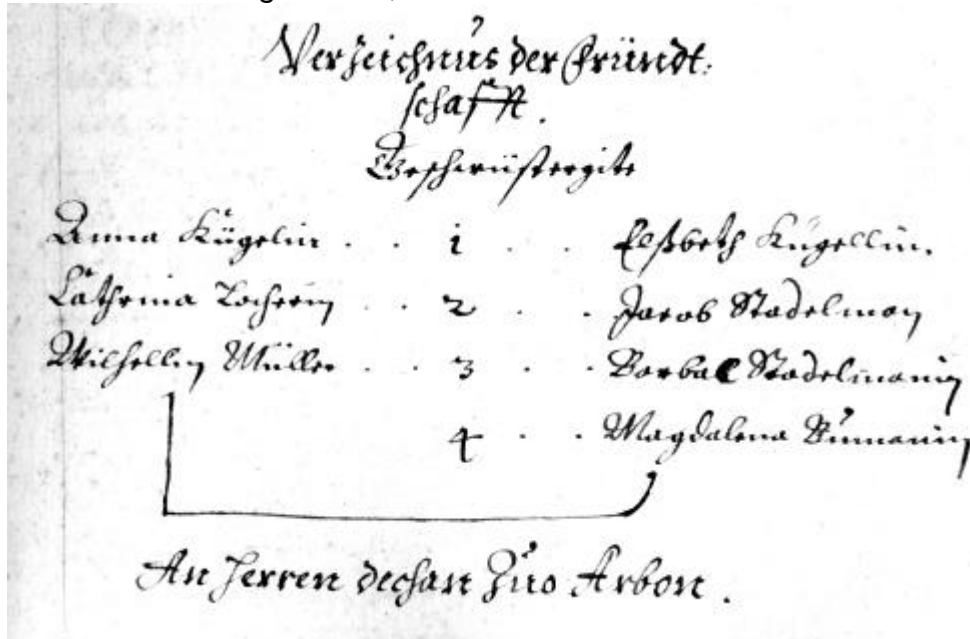 Verzeichnus der Fründt:
schafft.
Geschwüstergite
Anna Kügelin . . 1 . . Elßbeth Kügellin.
Cathrina Locherin . . 2 . . Jacob Stadelman
Wilhellm Müller . . 3 . . Barbel Stadelmanin
4 . . Magdalena
An Herren dechan Zuo Arbon.